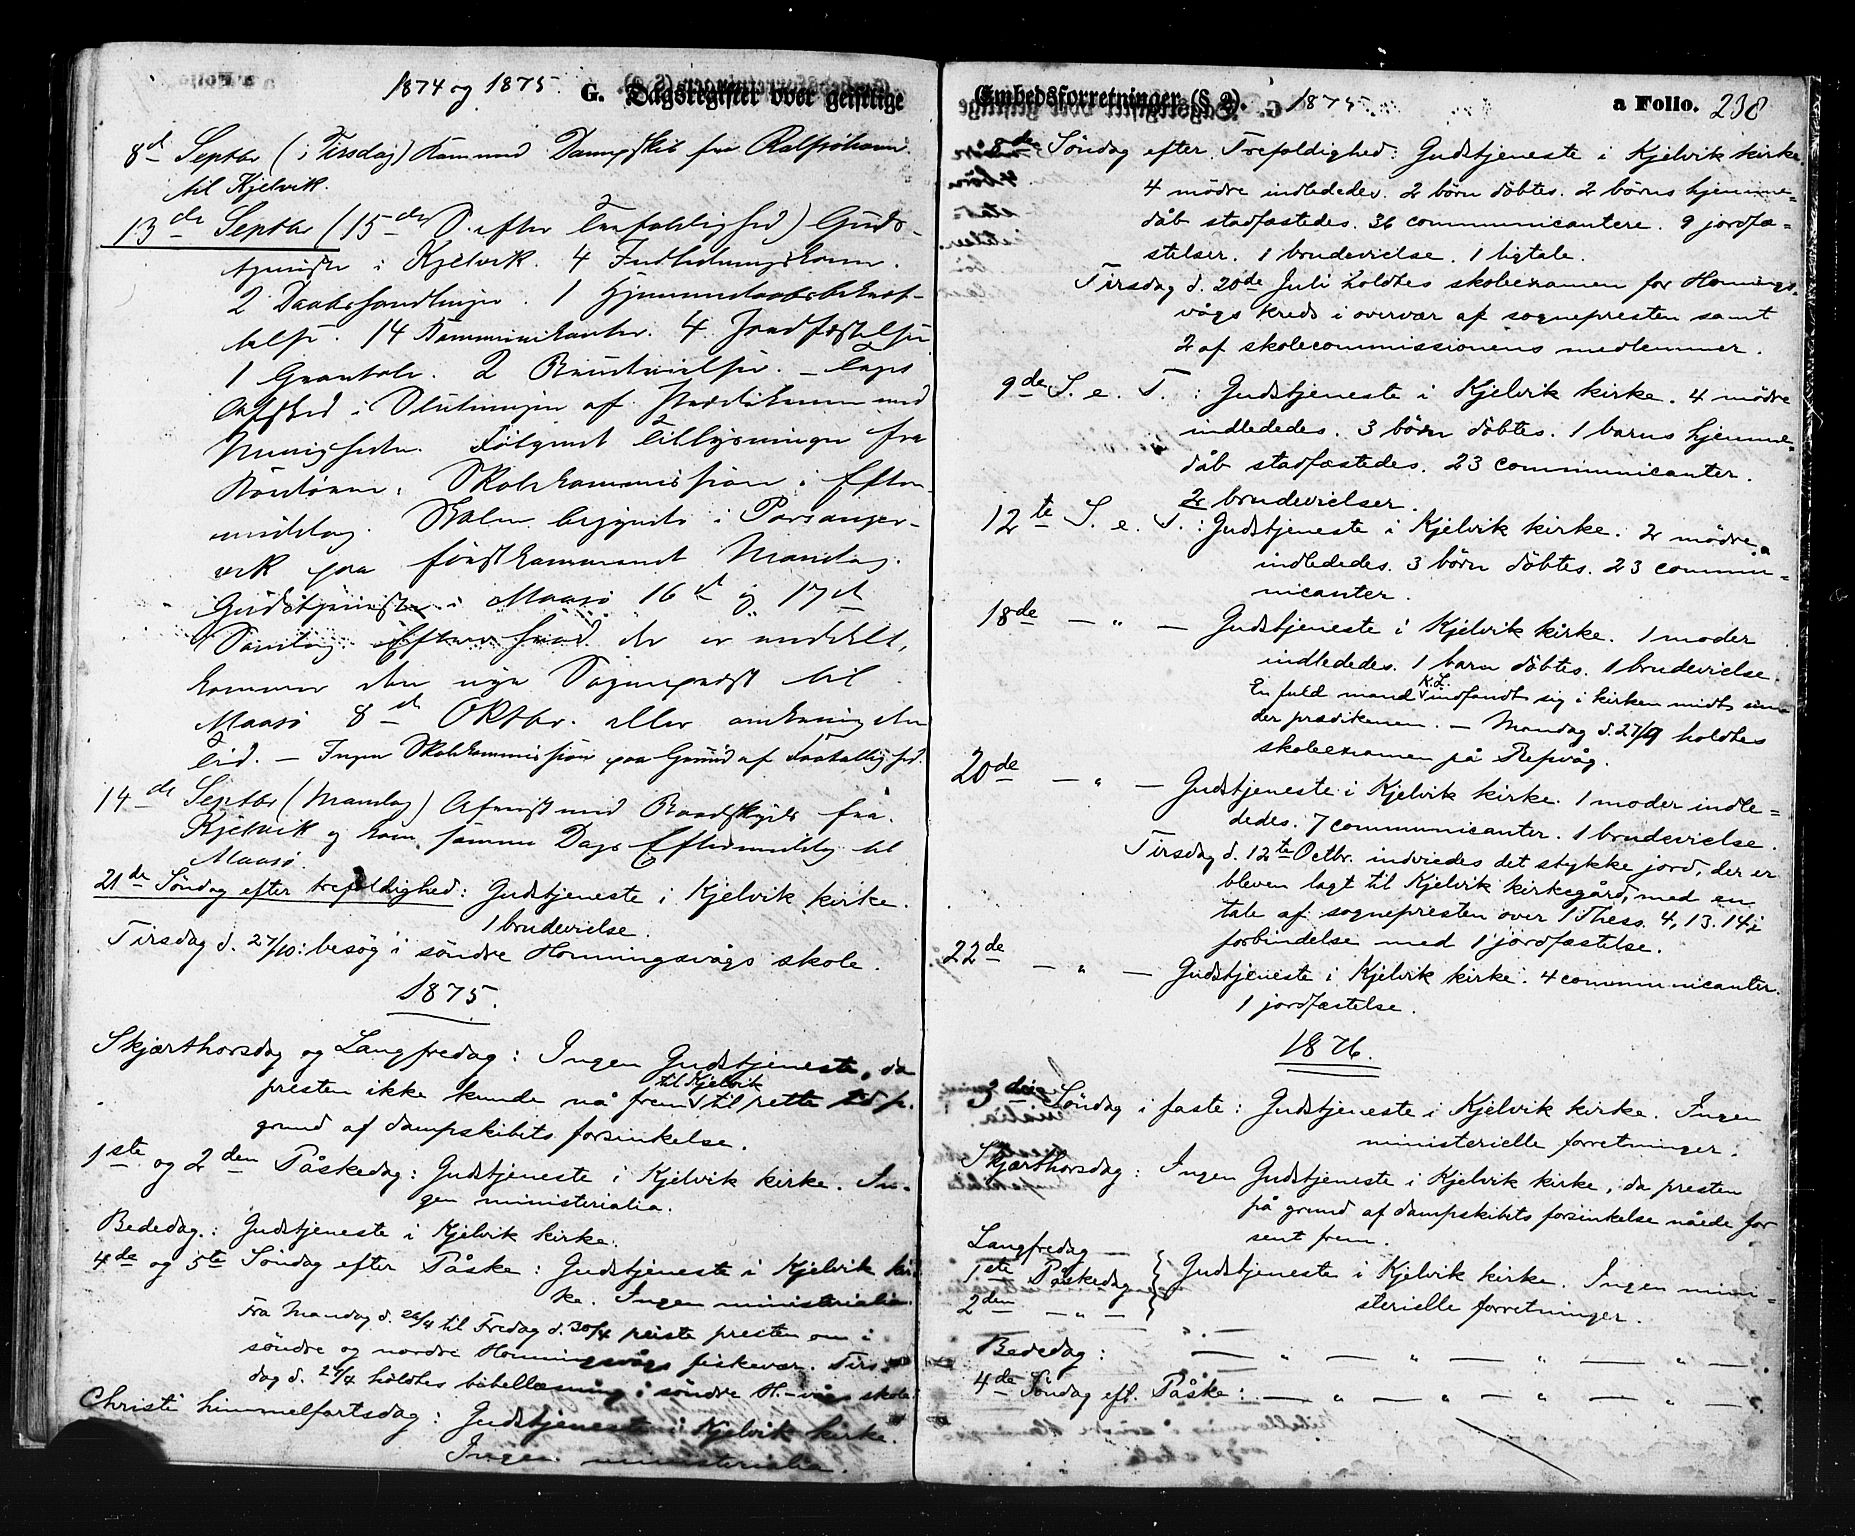 1874 og 1875. G. Dagsregister over geistlige
8d Septbr (i Tirsdag) Kom med Dampskib fra
til Kjelvik.
13de Septbr (15de S. efter Trefoldighed) Guds-
tjeneste i Kjelvik. 4 Indledningskoner.
2 Daabshandlinger. 1 Hjemmedaabsbekræf-
telse. 14 Kommunikanter. 4 Jordfæstelser
1 Gravtale. 2 Brudevielser. - Toges
Afsked i Slutningen af Prædikenen med
Menigheden. Følgende Tillysninger fra
Kordøren: Skolekommission i Efter-
middag. Skolen begyndte i Porsanger-
vik paa førstkommende Mandag.
Gudstjeneste i Maasø 16d og 17d
Søndag. Efter hvad der er meddelt,
kommer den nye Sognepræst til
Maasø 8d Oktbr. eller omkring den
Tid. - Ingen Skolekommission paa Grund af Faatallighed.
14de Septbr (Mandag) Afreist med Baadskyds fra
Kjelvik og kom samme Dags Eftermiddag til
Maasø.
21de Søndag efter trefoldighed: Gudstjeneste i Kjelvik kirke.
1 brudevielse.
Tirsdag d. 27/10: besøg i søndre Honningsvågs skole.
1875.
Skjærthorsdag og Langfredag: Ingen Gudstjeneste, da
presten ikke kunde nå frem til Kjelvik til rette tid p.
grund af dampskibets forsinkelse.
1ste og 2den Påskedag: Gudstjeneste i Kjelvik kirke. In-
gen ministerialia.
Bededag: Gudstjeneste i Kjelvik kirke.
4de og 5te Søndag efter Påske: Gudstjeneste i Kjelvik kir-
ke. Ingen ministerialia.
Fra Mandag d. 26/4 til Fredag d. 30/4 reiste presten om i
søndre og nordre Honningsvågs fiskevær. Tirs-
dag d. 27/4 holdtes bibellæsning i søndre H.-vågs skole
Christi himmelfartsdag: Gudstjeneste i Kjelvik kirke.
Ingen ministerialia.
Embedsforretninger (§ 2). G. 1875. a Folio. 238
8de Søndag efter Trefoldighed: Gudstjeneste i Kjelvik kirke.
4 mødre indlededes. 2 børn døbtes. 2 børns hjemme-
dåb stadfæstedes. 36 communicantere. 9 jordfæ-
stelser. 1 brudevielse. 1 ligtale.
Tirsdag d. 20de Juli holdtes skoleexamen for Honnings-
vågs kreds i overvær af sognepresten samt
2 af skolecommissionens medlemmer.
9de S. e. T.: Gudstjeneste i Kjelvik kirke. 4 mødre
indlededes. 3 børn døbtes. 1 barns hjemme-
dåb stadfæstedes. 23 communicanter.
2 brudevielser.
12te S. e. T.: Gudstjeneste i Kjelvik kirke. 2 mødre
indlededes. 3 børn døbtes. 23 commu-
nicanter.
18de — " — Gudstjeneste i Kjelvik kirke. 1 moder
indlededes. 1 barn døbtes. 1 brudevielse.
En fuld mand K.L. indfandt sig i kirken midt un-
der prædikenen. - Mandag d. 27/9 holdtes
skoleexamen på Repvåg.
20de — " — Gudstjeneste i Kjelvik kirke. 1 moder indle-
dedes. 7 communicanter. 1 brudevielse.
Tirsdag d. 12te Octbr. indviedes det stykke jord, der er
bleven lagt til Kjelvik kirkegård, med en
tale af sognepresten over 1 Thess. 4, 13. 14 i
forbindelse med 1 jordfæstelse.
22de — " — Gudstjeneste i Kjelvik kirke. 4 communicanter.
1 jordfæstelse.
1876.
3die Søndag i faste: Gudstjeneste i Kjelvik kirke. Ingen
ministerielle forretninger.
Skjærthorsdag: Ingen Gudstjeneste i Kjelvik kirke, da presten
på grund af dampskibets forsinkelse nåede for
sent frem.
Langfredag —
1ste Påskedag } Gudstjeneste i Kjelvik kirke. Ingen mini-
2den — " — sterielle forretninger.
Bededag: — " — " — " — " —
4de Søndag eft. Påske: — " — " — " — " —